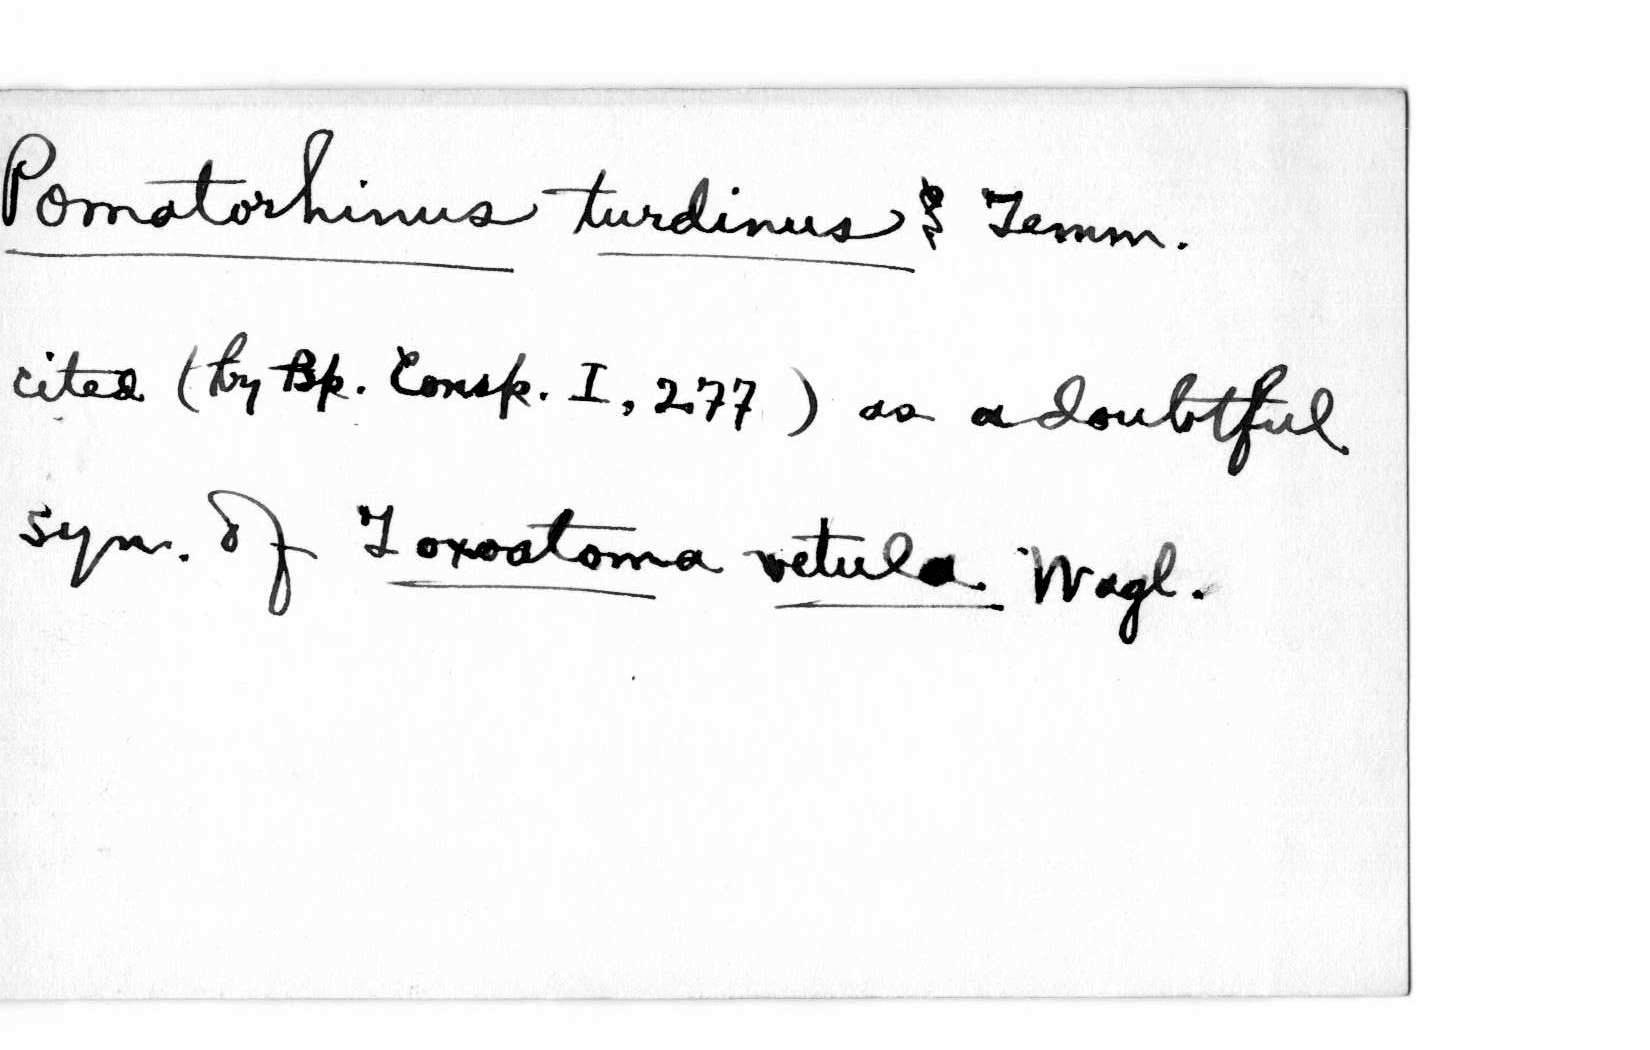 Pomatorhinus turdinus Temm.
cited (by Bp. Consp. I, 277) as a doubtful
syn. of Toxostoma vetula Wagl.